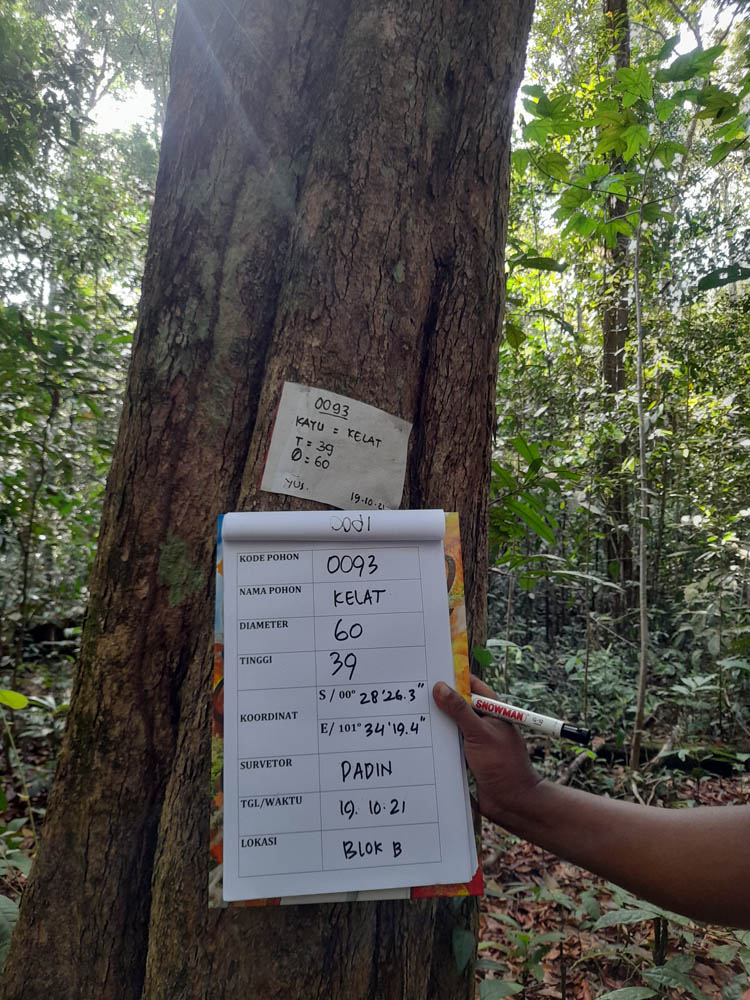 0093
KAYU = KELAT
T = 39
Ø = 60
YUS. 19.10.21
KODE POHON 0093
NAMA POHON KELAT
DIAMETER 60
TINGGI 39
KOORDINAT S / 00° 28'26.3"
E/ 101° 34'19.4"
SURVETOR DADIN
TGL/WAKTU 19. 10.21
LOKASI BLOK B
SNOWMAN